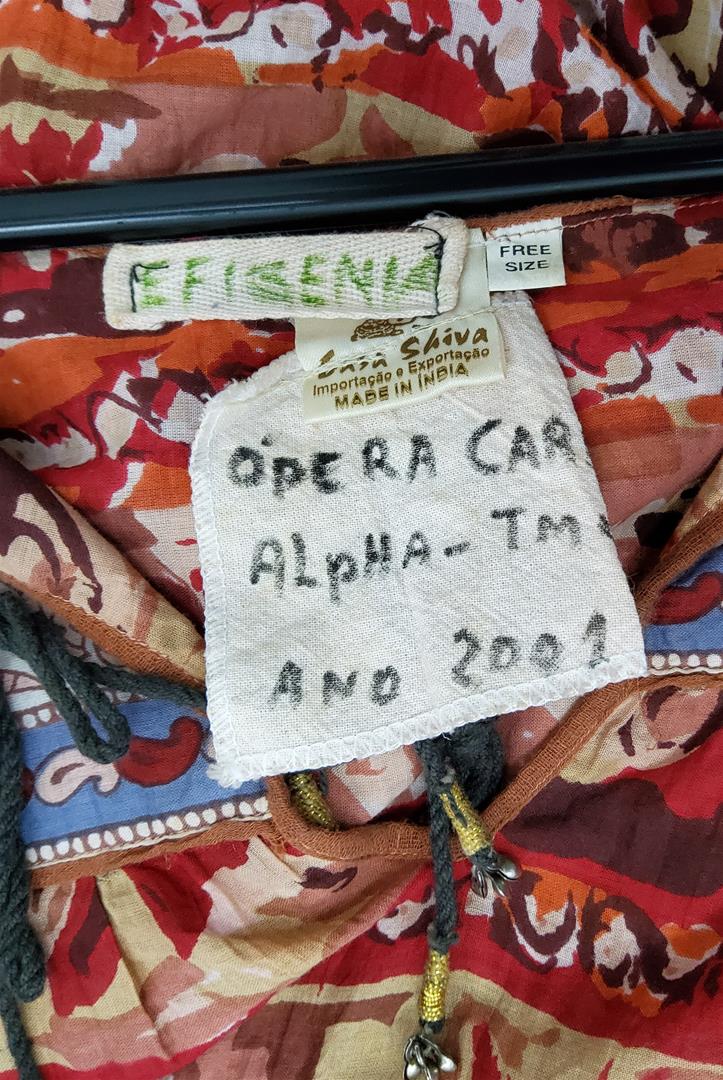 EFIGENIA
FREE
SIZE
Casa Shiva
Importação e Exportação
MADE IN INDIA
ÓPERA CAR
ALpHA - TM
ANO 2001